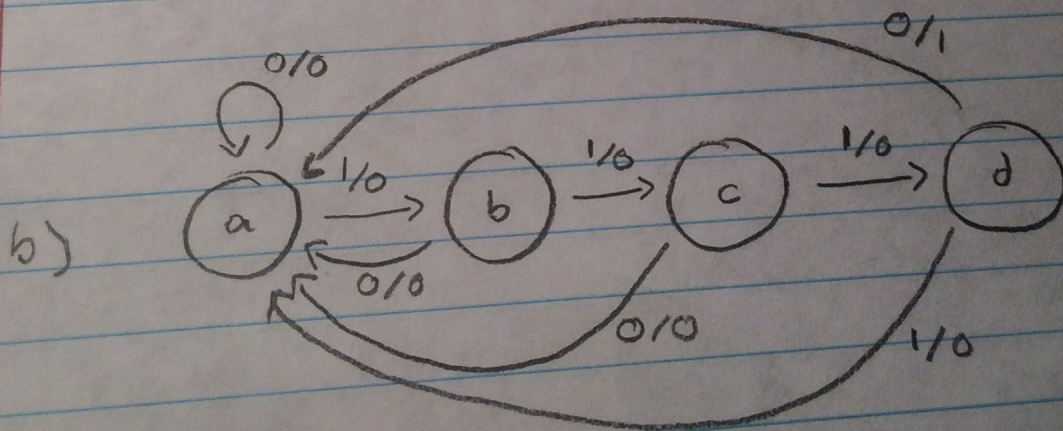 0/1
0/0
1/0
1/0
1/0
b)
a
b
c
d
0/0
0/0
1/0